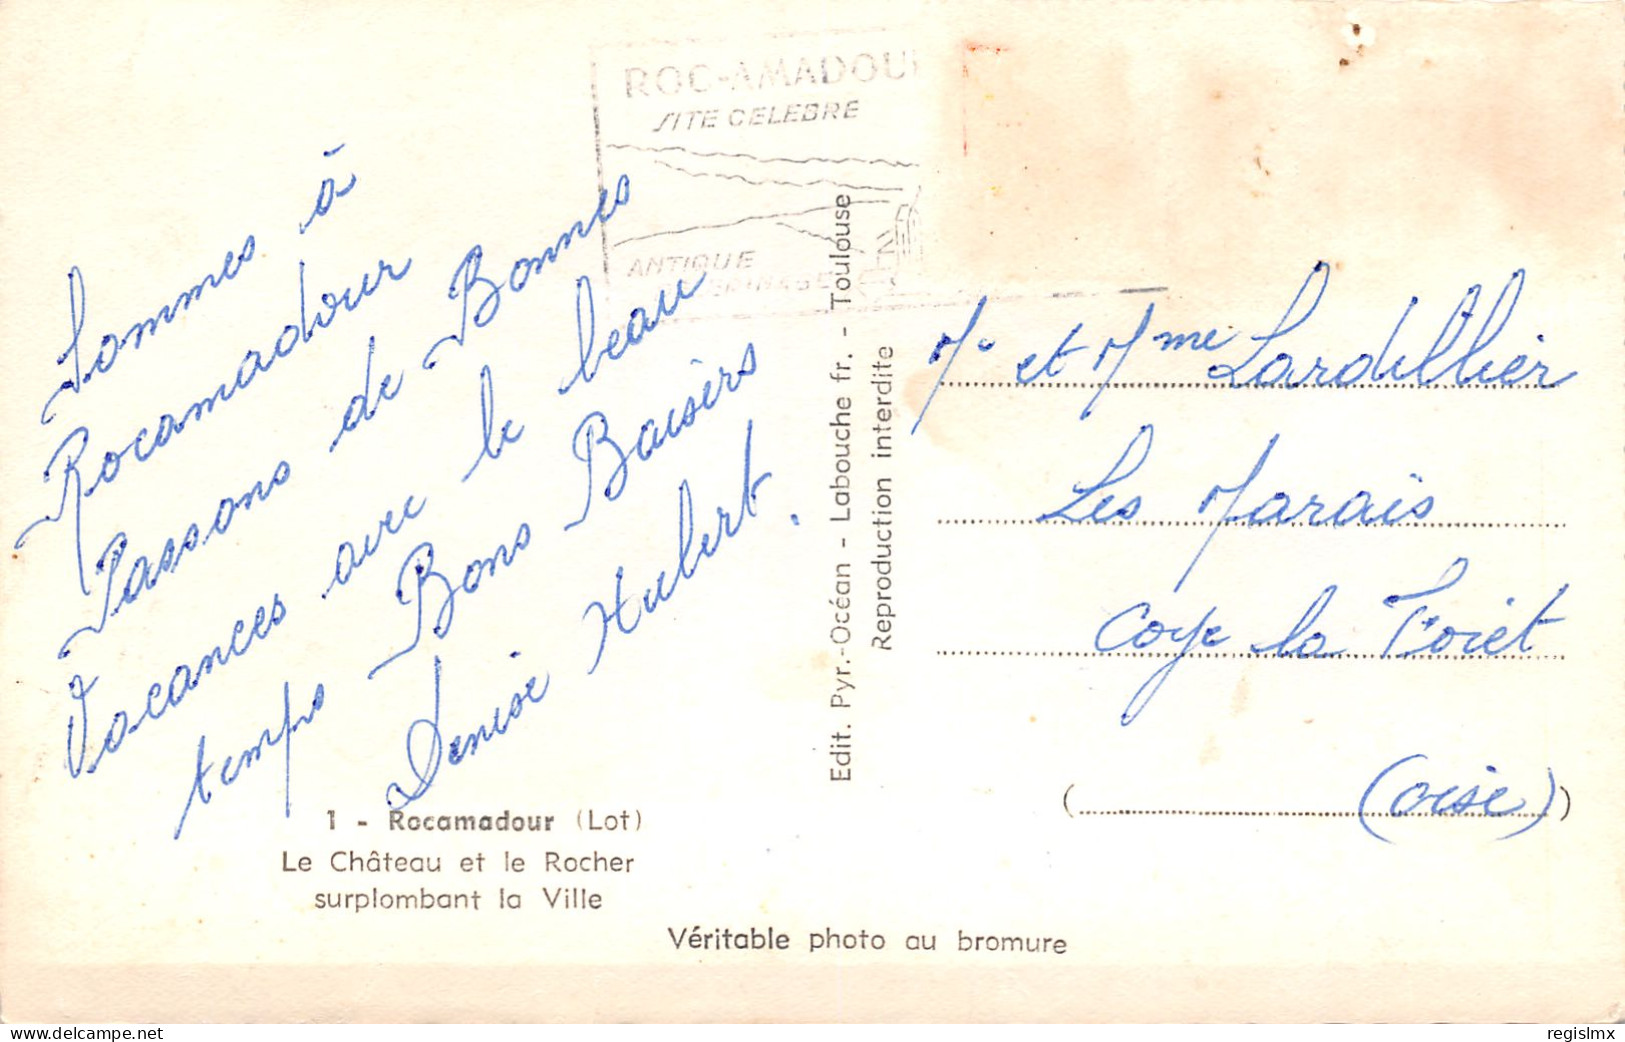 ROC-AMADOU
SITE CELEBRE
ANTIQUE
Sommes à
Rocamadour
Passons de Bonnes
Vacances avec le beau
temps Bons Baisers
Denise Hubert.
1 - Rocamadour (Lot)
Le Château et le Rocher
surplombant la Ville
Véritable photo au bromure
Edit. Pyr.-Océan - Labouche fr. - Toulouse
Reproduction interdite
Mr et Mme Lardillier
Les Marais
Coye la Foret
(oise)
delcampe.net
regislmx